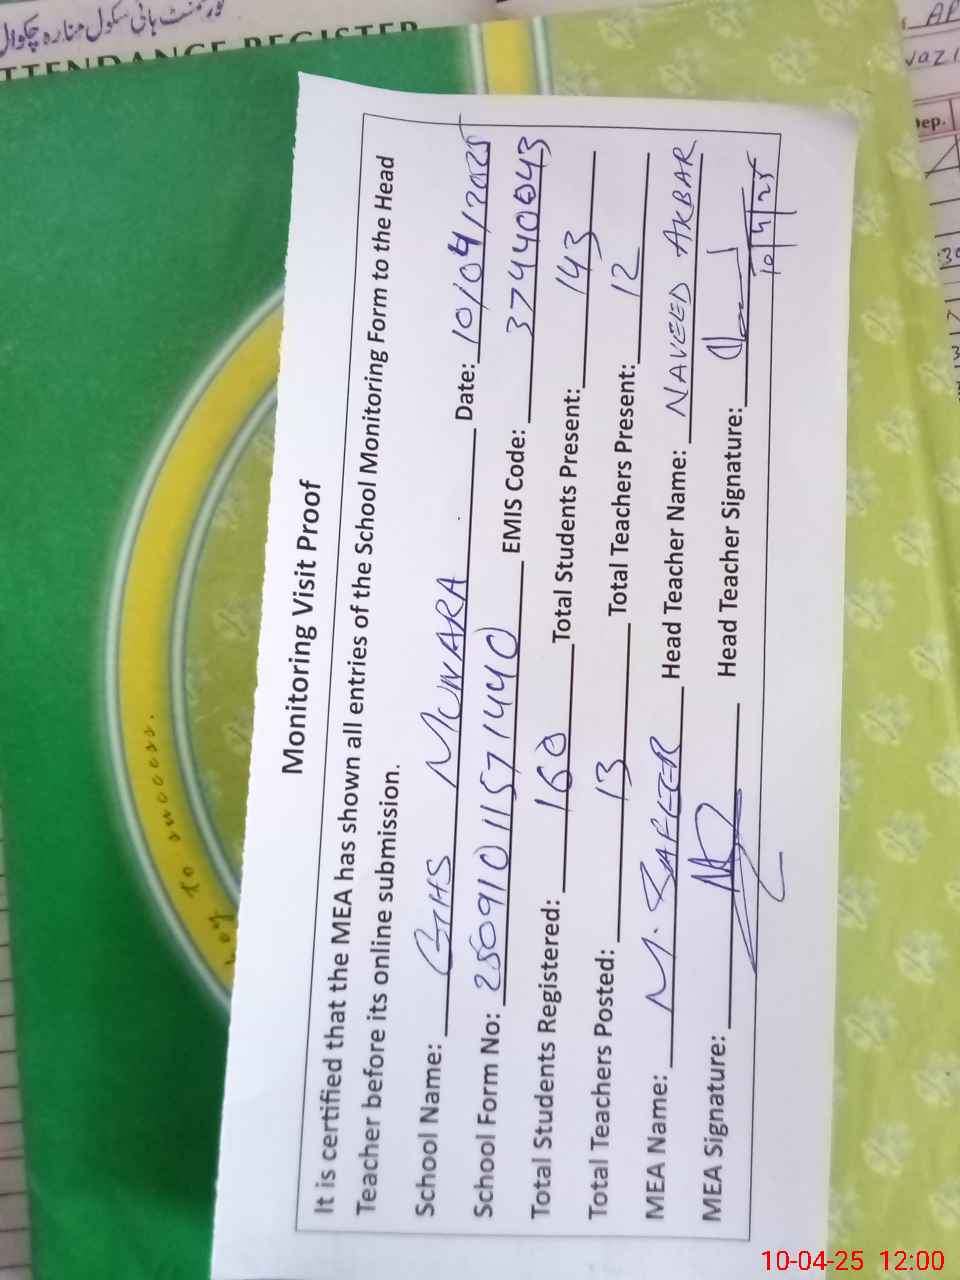 گورنمنٹ ہائی سکول منارہ چکوال
ATTENDANCE REGISTER
key to success.
Monitoring Visit Proof
It is certified that the MEA has shown all entries of the School Monitoring Form to the Head
Teacher before its online submission.
School Name: GHS MUNARA Date: 10/04/2025
School Form No: 25091011571440 EMIS Code: 37440043
Total Students Registered: 160 Total Students Present: 143
Total Teachers Posted: 13 Total Teachers Present: 12
MEA Name: M. SAFEER Head Teacher Name: NAVEED AKBAR
MEA Signature: Head Teacher Signature:
10/4/25
Dep.
10-04-25 12:00